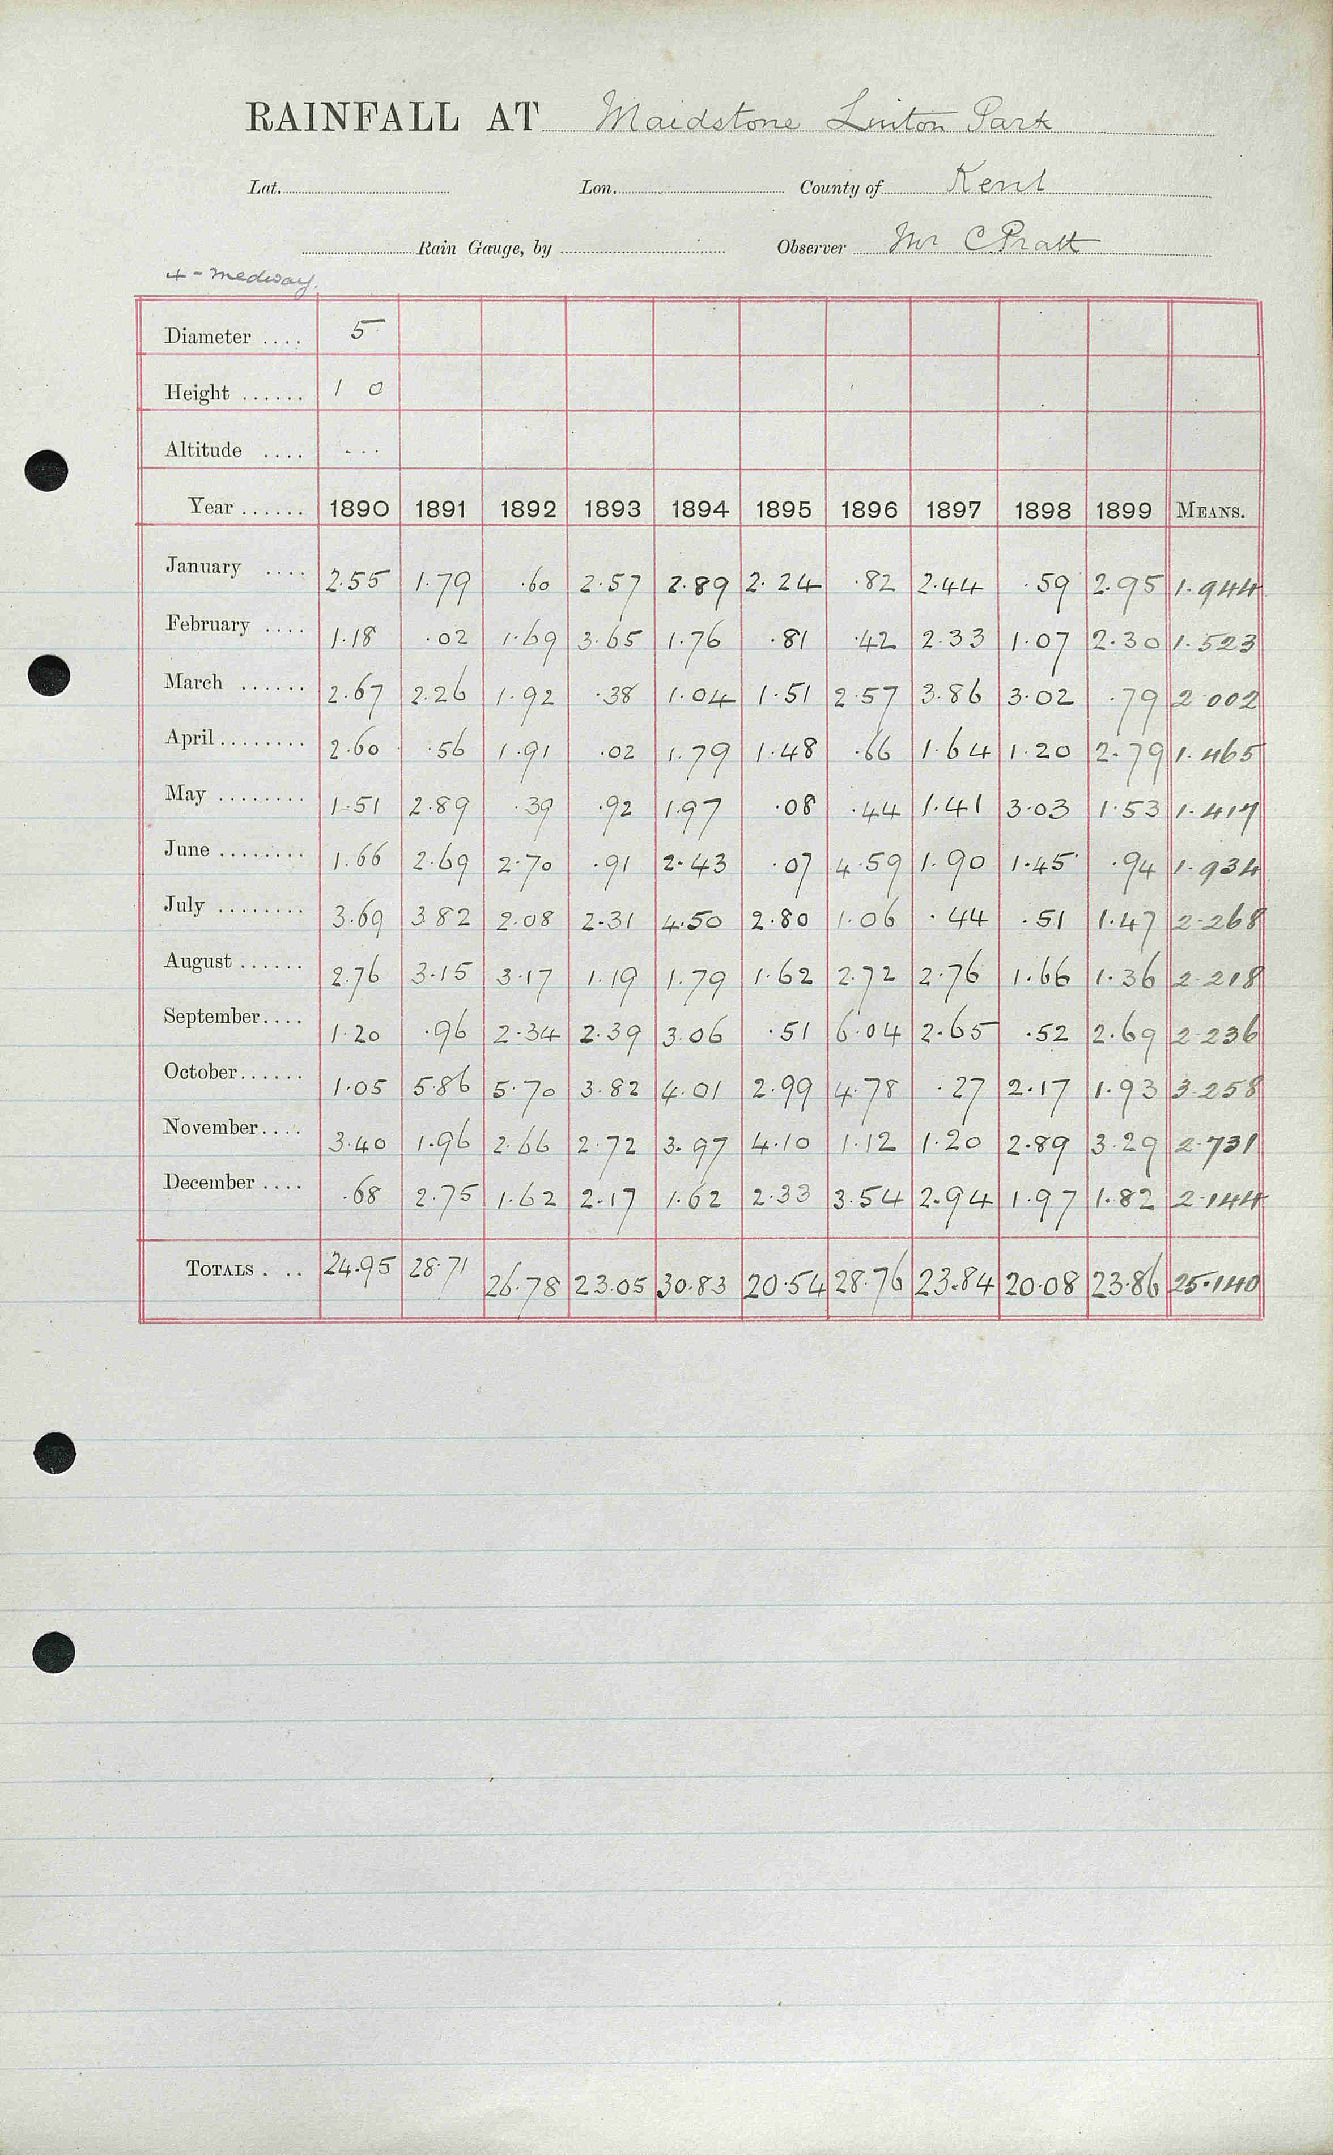 RAINFALL AT Maidstone Linton Park
Lat. Lon. County of Kent
Rain Gauge, by Observer Mr C Pratt
4 - Medway.
Diameter .... 5
Height ...... 1 0
Altitude .... ...
Year ...... 1890 1891 1892 1893 1894 1895 1896 1897 1898 1899 MEANS.
January .... 2.55 1.79 .60 2.57 2.89 2.24 .82 2.44 .59 2.95 1.944
February .... 1.18 .02 1.69 3.65 1.76 .81 .42 2.33 1.07 2.30 1.523
March ...... 2.67 2.26 1.92 .38 1.04 1.51 2.57 3.86 3.02 .79 2.002
April ........ 2.60 .56 1.91 .02 1.79 1.48 .66 1.64 1.20 2.79 1.465
May ........ 1.51 2.89 .39 .92 1.97 .08 .44 1.41 3.03 1.53 1.417
June ........ 1.66 2.69 2.70 .91 2.43 .07 4.59 1.90 1.45 .94 1.934
July ........ 3.69 3.82 2.08 2.31 4.50 2.80 1.06 .44 .51 1.47 2.268
August ...... 2.76 3.15 3.17 1.19 1.79 1.62 2.72 2.76 1.66 1.36 2.218
September.... 1.20 .96 2.34 2.39 3.06 .51 6.04 2.65 .52 2.69 2.236
October...... 1.05 5.86 5.70 3.82 4.01 2.99 4.78 .27 2.17 1.93 3.258
November.... 3.40 1.96 2.66 2.72 3.97 4.10 1.12 1.20 2.89 3.29 2.731
December .... .68 2.75 1.62 2.17 1.62 2.33 3.54 2.94 1.97 1.82 2.144
TOTALS . .. 24.95 28.71 26.78 23.05 30.83 20.54 28.76 23.84 20.08 23.86 25.140